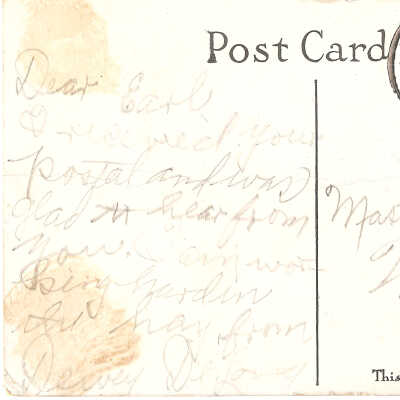 Post Card
Dear Earl
I received your
postal and was
glad to hear from
you. I am wor
king hard in
the hay from
Dewey DeJong
Mas
This